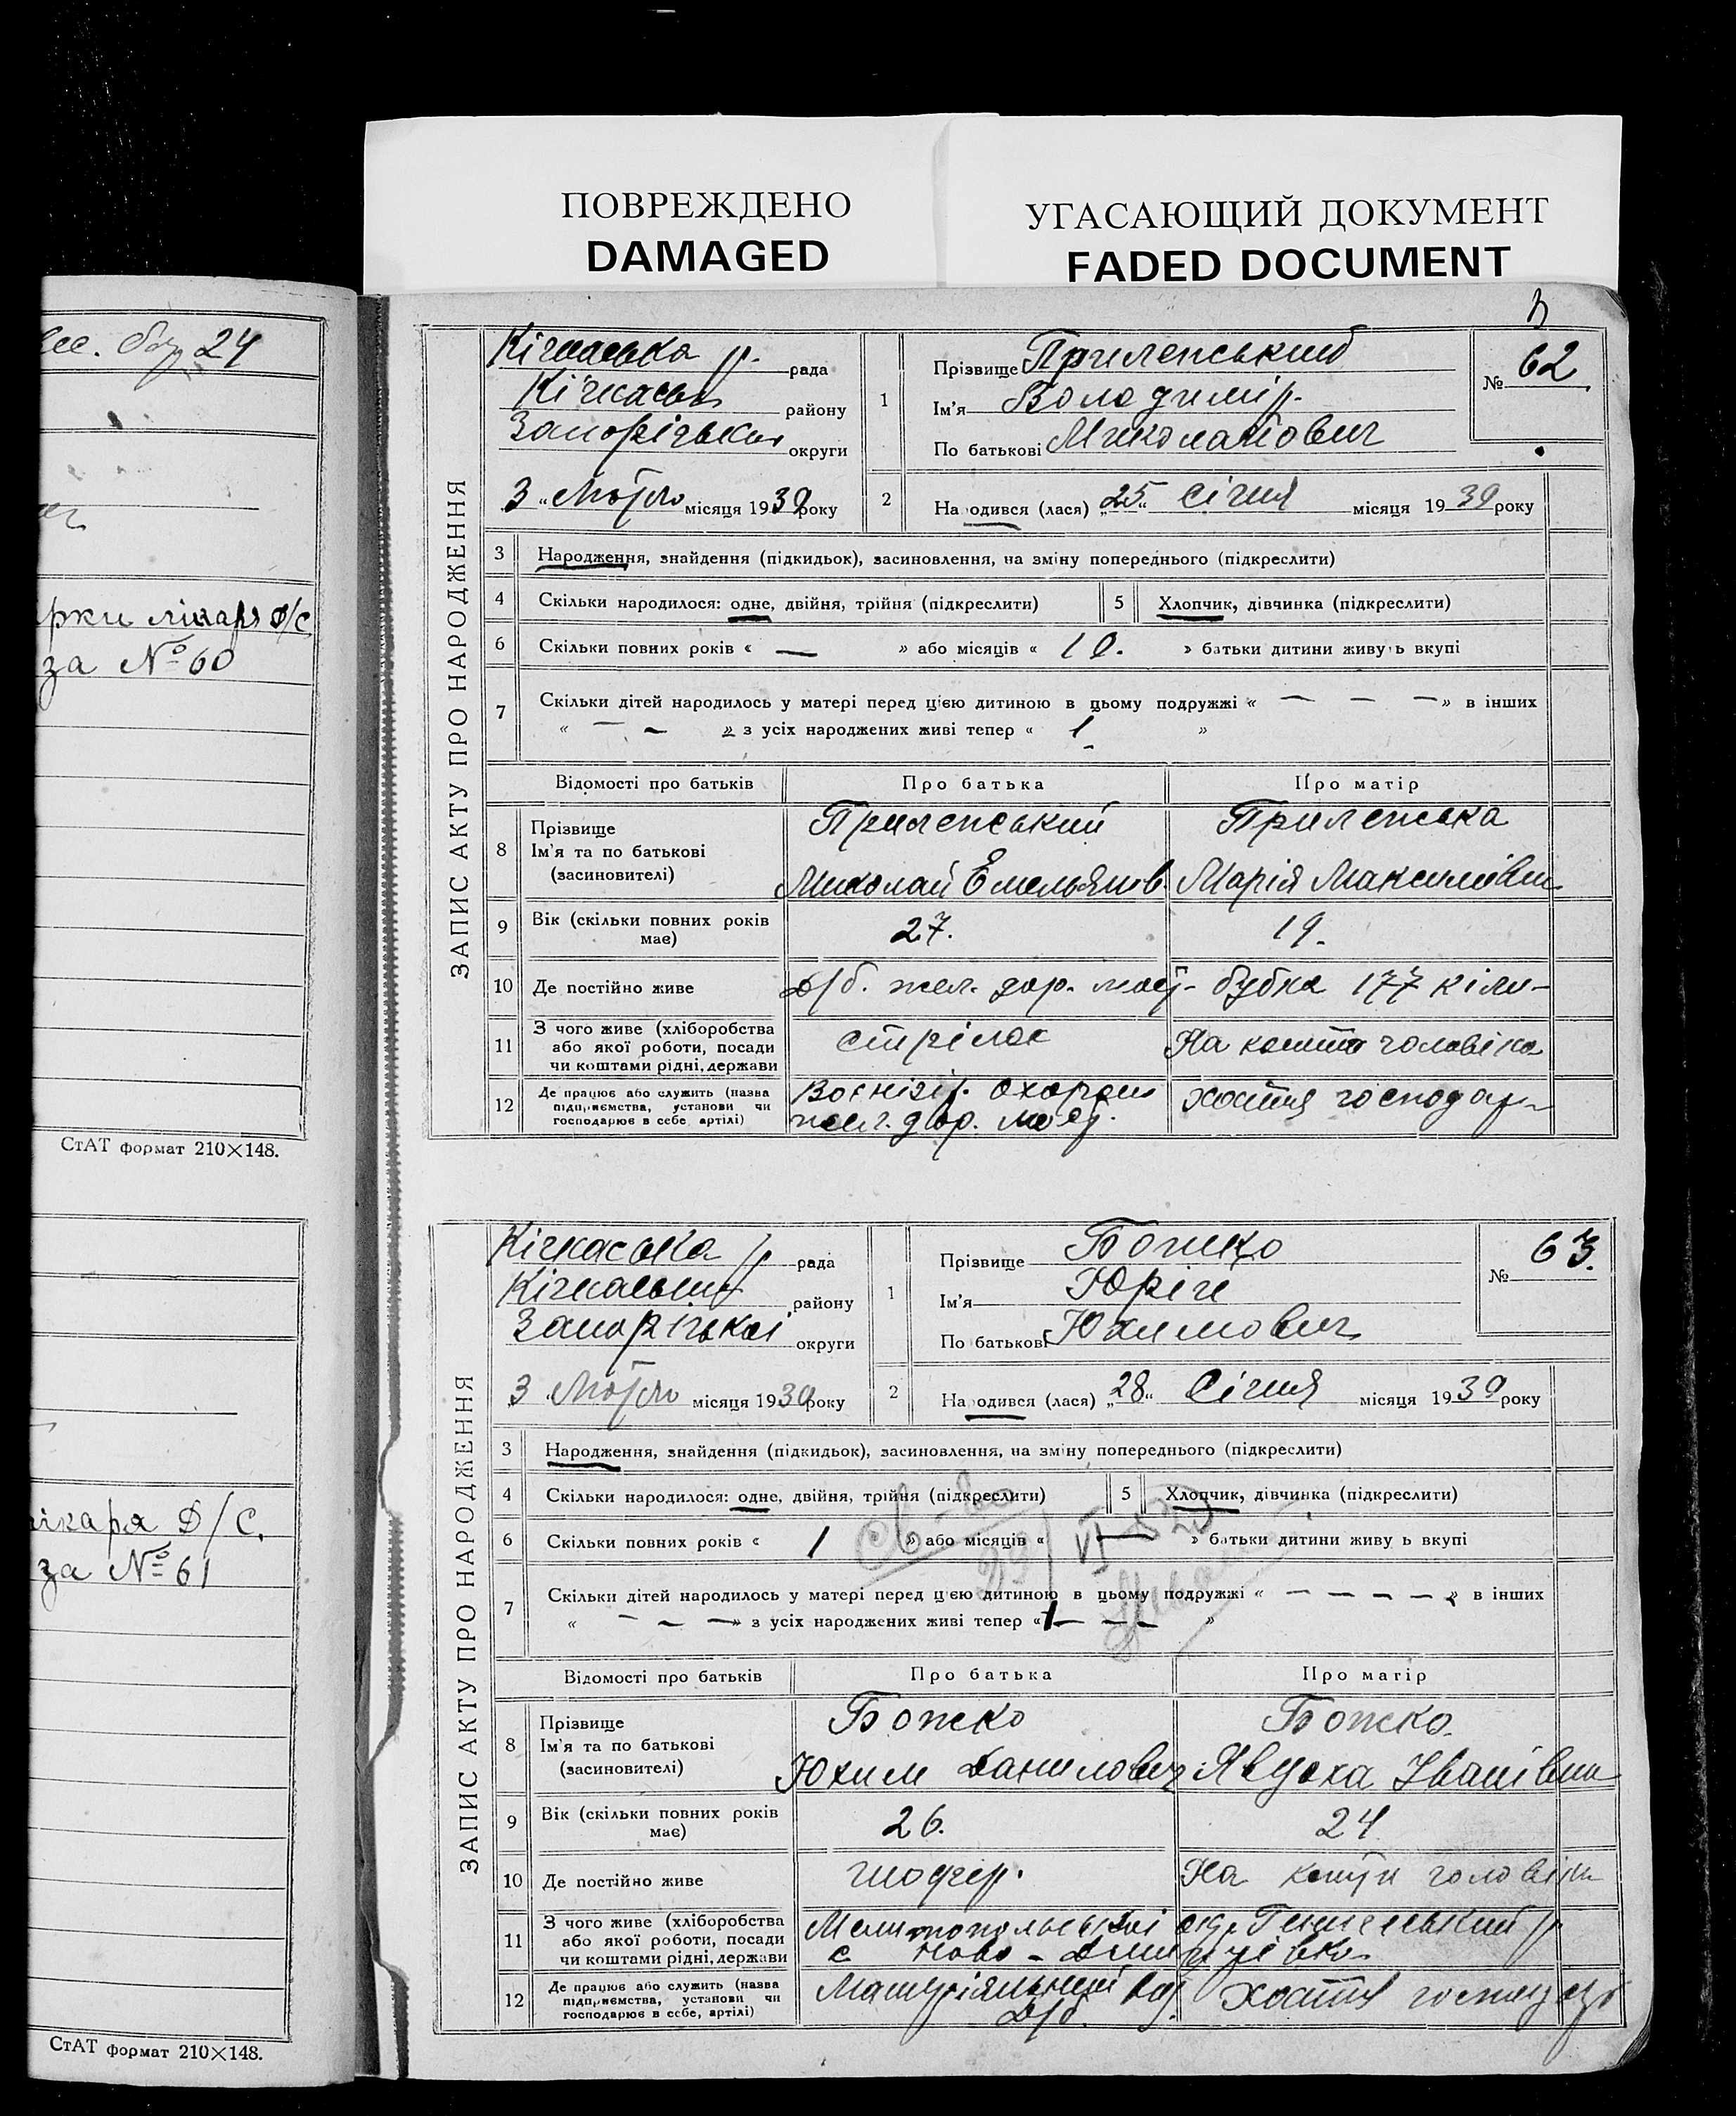 ПОВРЕЖДЕНО
DAMAGED
УГАСАЮЩИЙ ДОКУМЕНТ
FADED DOCUMENT
24
рки лікаря Д/С
за № 60
СтАТ формат 210×148.
лікаря Д/С.
за № 61
СтАТ формат 210×148.
ЗАПИС АКТУ ПРО НАРОДЖЕННЯ
Кічкаська р. рада
Кічкаськ району
Запорізьки округи
3 „ Лютого місяця 1930 року
1
Прізвище Прилепський
Ім'я Володимір.
По батькові Миколайович
№ 62
2
Народився (лася) „25“ Січня місяця 1930 року
3 Народження, знайдення (підкидьок), засиновлення, на зміну попереднього (підкреслити)
4 Скільки народилося: одне, двійня, трійня (підкреслити) 5 Хлопчик, дівчинка (підкреслити)
6 Скільки повних років « — » або місяців « 10. » батьки дитини живуть вкупі
7 Скільки дітей народилось у матері перед цією дитиною в цьому подружжі « — — — » в інших
« — — » з усіх народжених живі тепер « 1 »
Відомості про батьків Про батька Про матір
8 Прізвище Ім'я та по батькові (засновителі)
Прилепський Прилепська
Миколай Емельянов. Марія Максимівна
9 Вік (скільки повних років має) 27. 19.
10 Де постійно живе Д/б. жел. дор. мост. будка 177 кіло-
11 З чого живе (хліборобства або якої роботи, посади чи коштами рідні, держави
стрілок На кошти чоловіка
12 Де працює або служить (назва підприємства, установи чи господарює в себе, артілі)
Воєнізір. охорони Хатня господар
жел. дор. мост.
ЗАПИС АКТУ ПРО НАРОДЖЕННЯ
Кічкаська р рада
Кічкаський району
Запорізькі округи
3 „ Лютого місяця 1930 року
1
Прізвище Божко
Ім'я Юрій
По батькові Юхимович
№ 63.
2
Народився (лася) „28“ Січня місяця 1930 року
3 Народження, знайдення (підкидьок), засиновлення, на зміну попереднього (підкреслити)
4 Скільки народилося: одне, двійня, трійня (підкреслити) 5 Хлопчик, дівчинка (підкреслити)
6 Скільки повних років « 1 » або місяців « — » батьки дитини живуть вкупі
7 Скільки дітей народилось у матері перед цією дитиною в цьому подружжі « — — — — » в інших
« — — — » з усіх народжених живі тепер « 1 — — — »
Відомості про батьків Про батька Про матір
8 Прізвище Ім'я та по батькові (засиновителі)
Божко Божко
Юхим Данилович Явдоха Іванівна
9 Вік (скільки повних років має) 26. 24
10 Де постійно живе шофер. На кошти чоловіка
11 З чого живе (хліборобства або якої роботи, посади чи коштами рідні, держави
Мелитопольської окр. Генічеський р
с Ново-Дмитрівка
12 Де працює або служить (назва підприємства, установи чи господарює в себе, артілі)
Матеріяльний Хатня господар
Д/б.